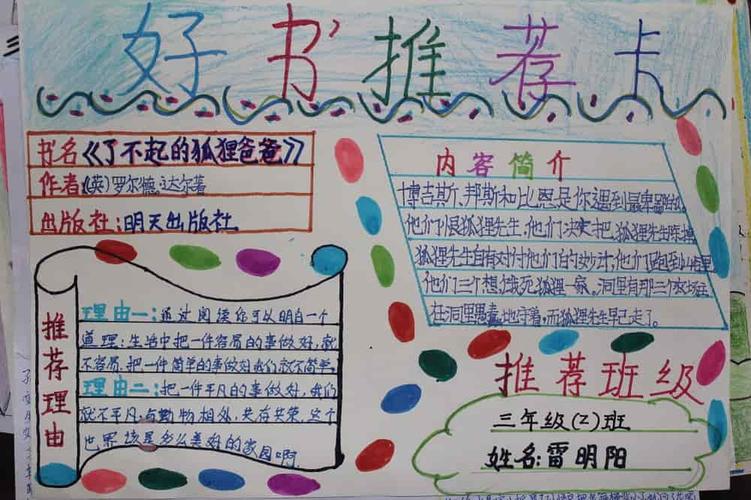 好书推荐卡
书名《了不起的狐狸爸爸》
作者:(英)罗尔德.达尔著
出版社:明天出版社
内容简介
博吉斯、邦斯和比恩是你遇到最卑鄙的
他们恨狐狸先生,他们决定把狐狸先生
狐狸先生自有对付他们的妙计,他们
他们三个想饿死狐狸一家。洞里有那三个
在洞里愚蠢地守着,而狐狸先生早已走了。
推荐理由
理由一:通过阅读你可以明白一个
道理:生活中把一件容易的事做好,就
不容易,把一件简单的事做好我们就不简单
理由二:把一件平凡的事做好,我们
就不平凡;与动物相处,共存共荣,这个
世界该是多么美好的家园啊。
推荐班级
三年级(2)班
姓名:雷明阳